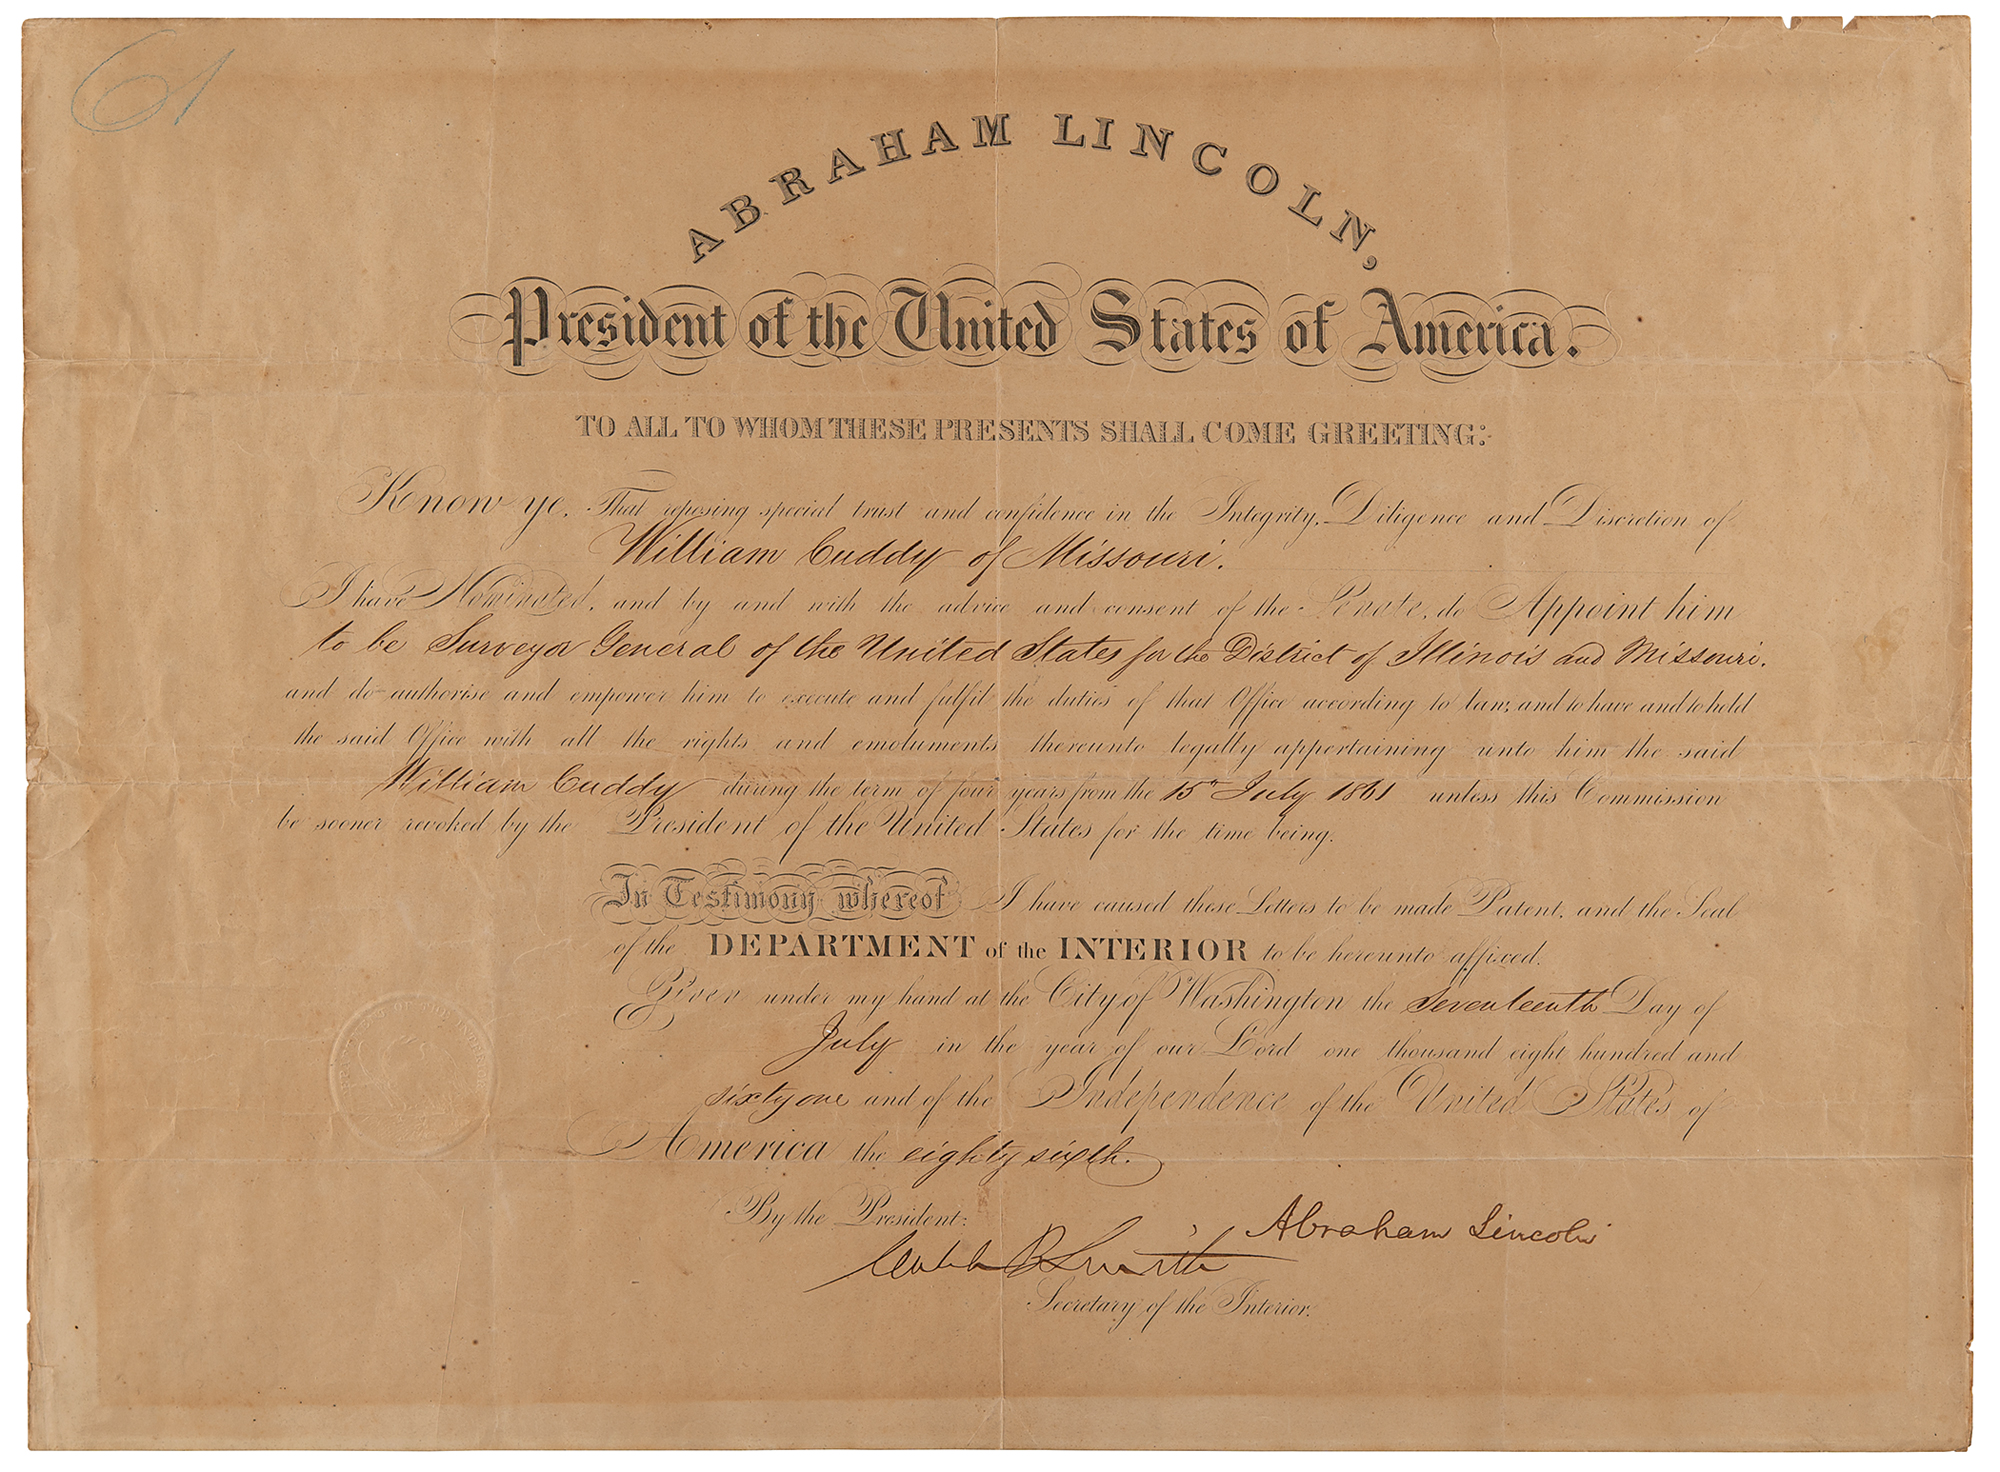 ABRAHAM LINCOLN,
President of the United States of America.
TO ALL TO WHOM THESE PRESENTS SHALL COME GREETING:
Know ye, That reposing special trust and confidence in the Integrity, Diligence and Discretion of
William Cuddy of Missouri.
I have Nominated, and by and with the advice and consent of the Senate, do Appoint him
to be Surveyor General of the United States for the District of Illinois and Missouri.
and do authorise and empower him to execute and fulfil the duties of that Office according to law; and to have and to hold
the said Office with all the rights and emoluments thereunto legally appertaining unto him the said
William Cuddy during the term of four years from the 15th July 1861 unless this Commission
be sooner revoked by the President of the United States for the time being.
In Testimony whereof I have caused these Letters to be made Patent, and the Seal
of the DEPARTMENT of the INTERIOR to be hereunto affixed.
Given under my hand at the City of Washington the Seventeenth Day of
July in the year of our Lord one thousand eight hundred and
sixty one and of the Independence of the United States of
America the eighty sixth.
By the President:
Abraham Lincoln
Caleb B Smith
Secretary of the Interior.